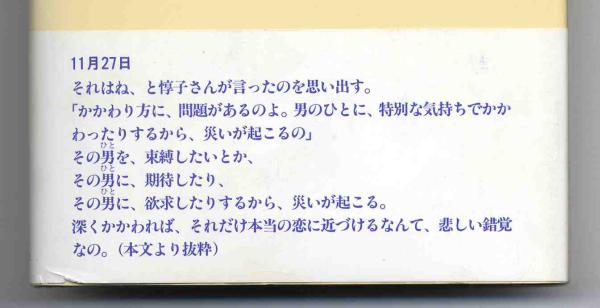 11月27日
それはね、と惇子さんが言ったのを思い出す。
「かかわり方に、問題があるのよ。男のひとに、特別な気持ちでかか
わったりするから、災いが起こるの」
その男を、束縛したいとか、
その男に、期待したり、
その男に、欲求したりするから、災いが起こる。
深くかかわれば、それだけ本当の恋に近づけるなんて、悲しい錯覚
なの。(本文より抜粋)